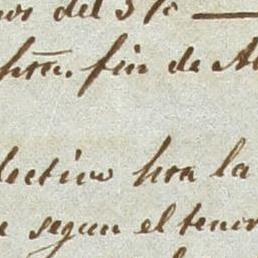 del 5%
fin de A
lectivo hra la
segun el tenor